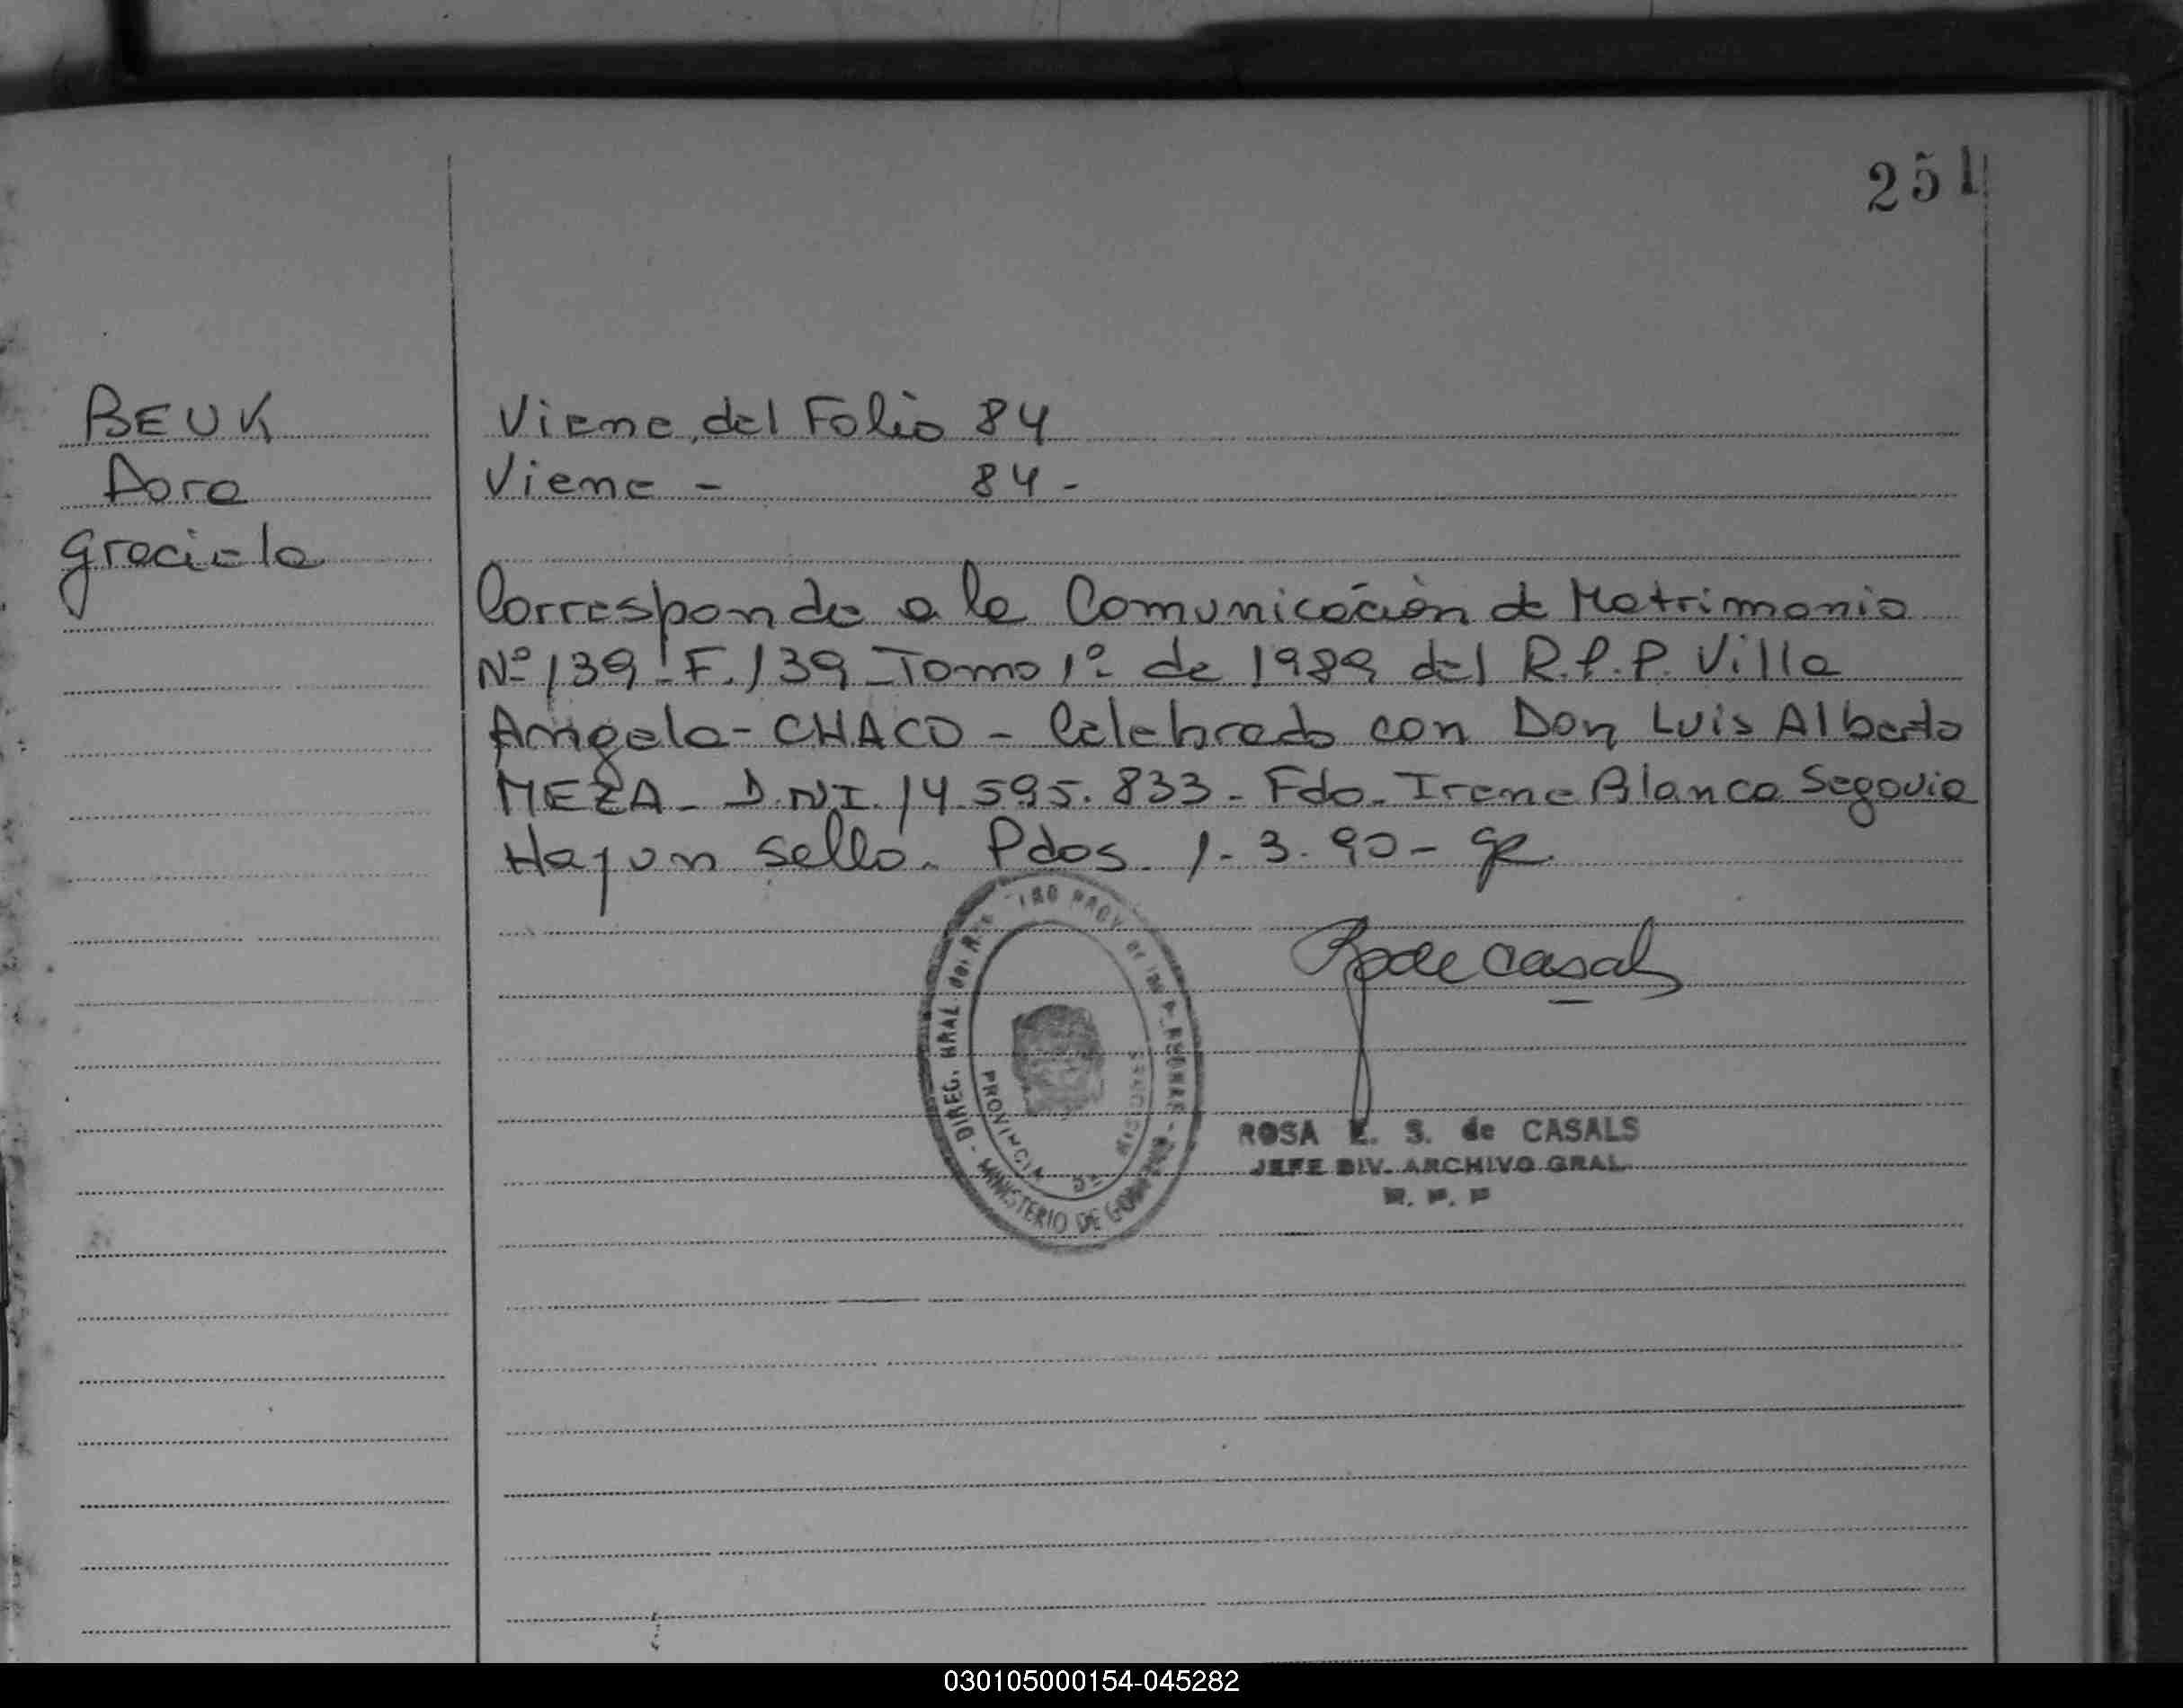 251
BEUK
Dora
Graciela
Viene del Folio 84
Viene - 84 -
Corresponde a la Comunicación de Matrimonio
Nº 139 - F. 139 - Tomo 1º de 1989 del R.P.P. Villa
Angela - CHACO - Celebrado con Don Luis Alberto
MEZA - D.N.I. 14.595.833 - Fdo. Irene Blanca Segovia
Hay un sello. Pdos. 1-3-90 -
DIREC. GRAL del PROV de las - MINISTERIO DE
PROVINCIA DE MISIONES
ROSA E. S. de CASALS
JEFE DIV. ARCHIVO GRAL.
R. P. P
030105000154-045282